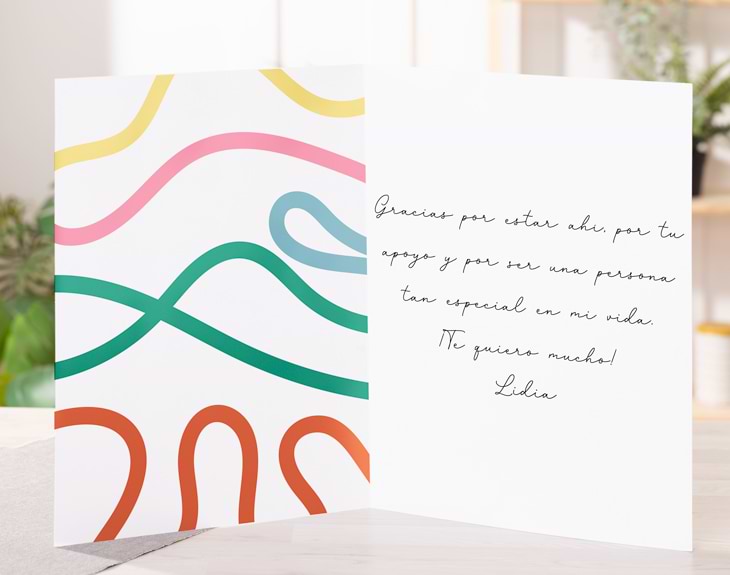 Gracias por estar ahí, por tu
apoyo y por ser una persona
tan especial en mi vida.
¡Te quiero mucho!
Lidia